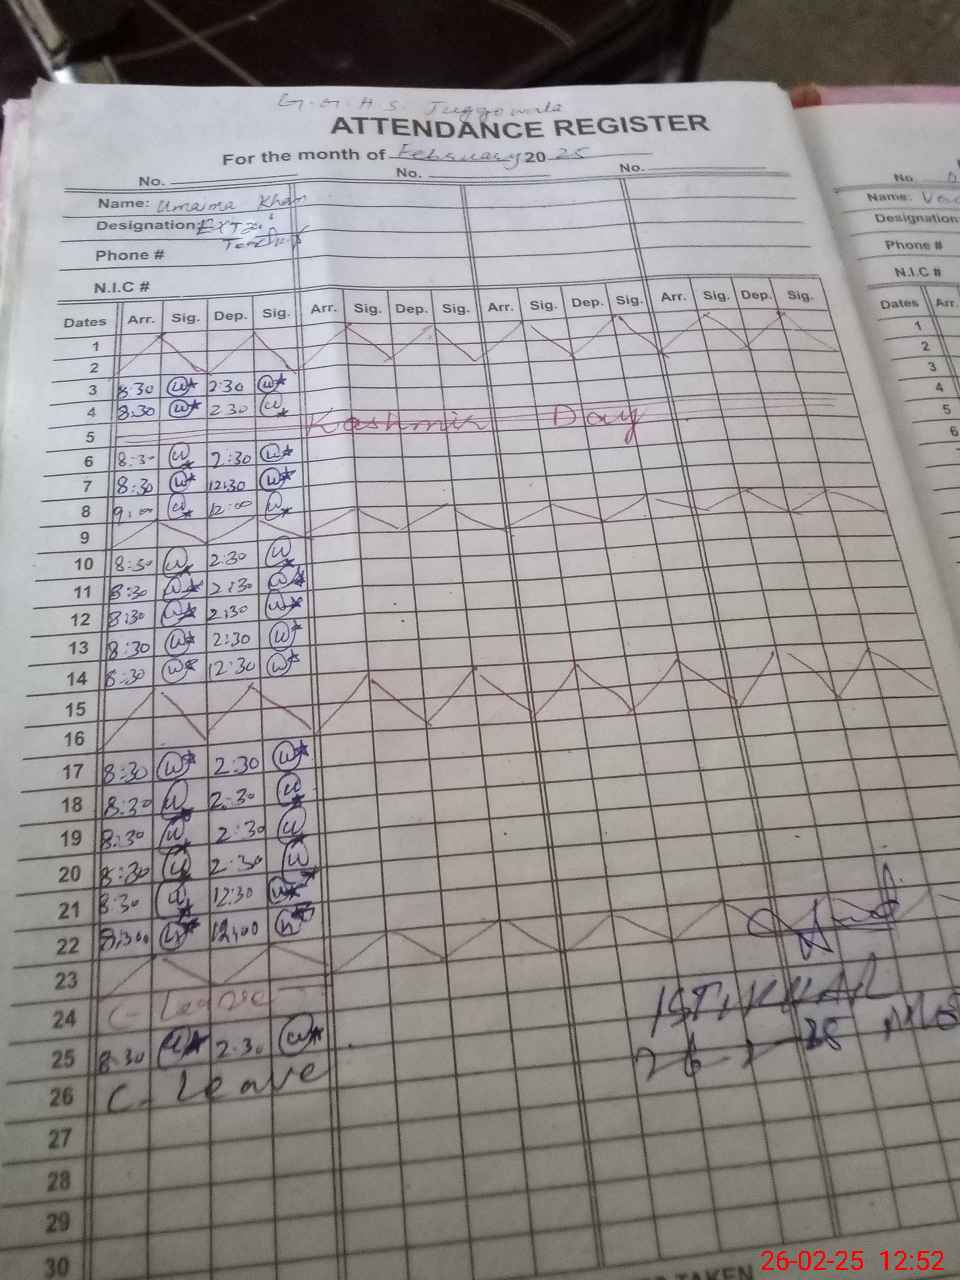 G.G.H.S. Juggowala
ATTENDANCE REGISTER
For the month of February 2025
No. No. No.
Name: Umaima Khan
Designation:
Phone #
N.I.C #
Dates Arr. Sig. Dep. Sig. Arr. Sig. Dep. Sig. Arr. Sig. Dep. Sig. Arr. Sig. Dep. Sig.
1
2
3 8:30 2:30
4 8:30 2:30
5 Kashmir Day
6 8:30 2:30
7 8:30 12:30
8 9:00 12:00
9
10 8:30 2:30
11 8:30 2:30
12 8:30 2:30
13 8:30 2:30
14 8:30 12:30
15
16
17 8:30 2:30
18 8:30 2:30
19 8:30 2:30
20 8:30 2:30
21 8:30 12:30
22 8:30 12:00
23
24 C-Leave
25 8:30 2:30
26 C. Leave
27
28
29
30
No.
Name:
Designation
Phone #
N.I.C #
Dates Arr.
1
2
3
4
5
6
TAKEN
26-02-25 12:52